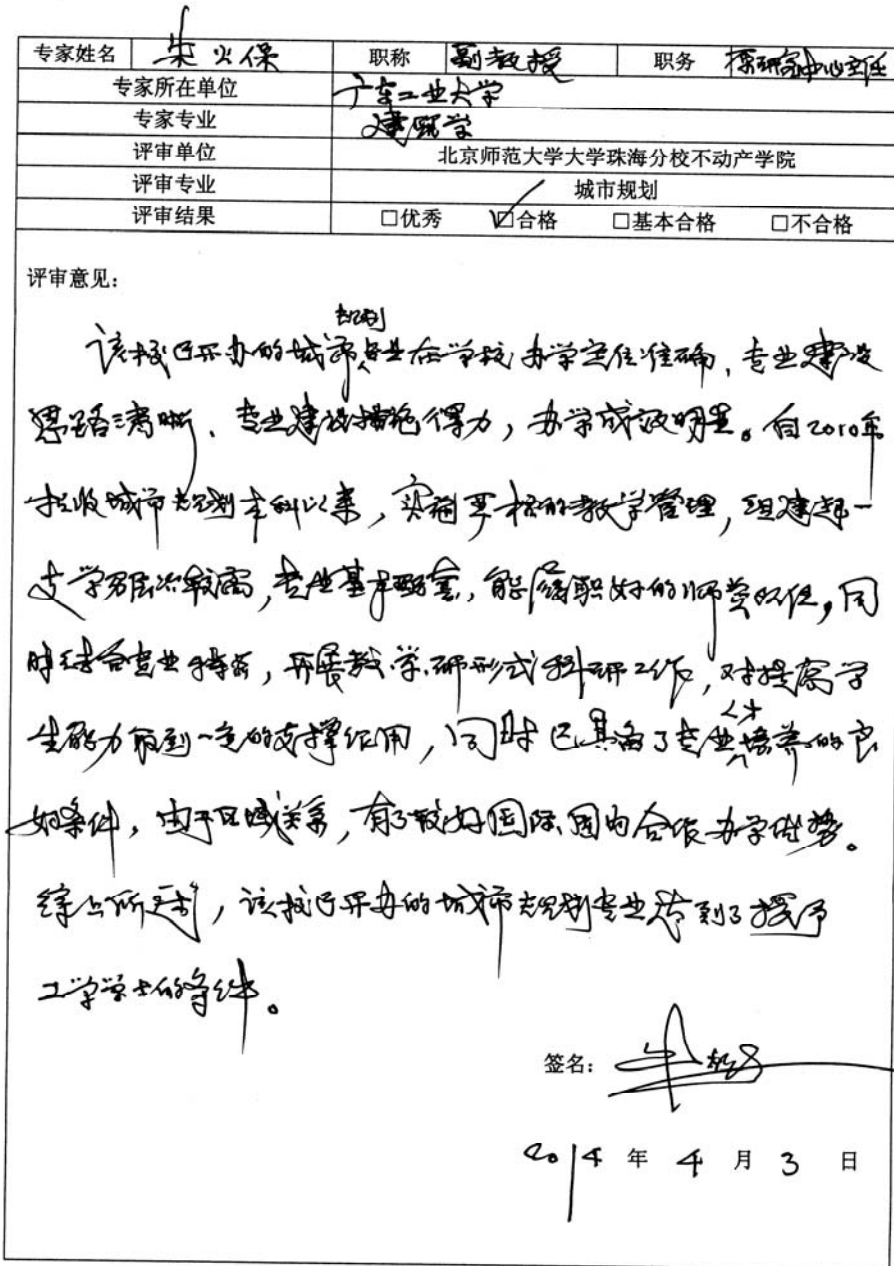 专家姓名 朱火保 职称 副教授 职务 研究中心主任
专家所在单位 广东工业大学
专家专业 建筑学
评审单位 北京师范大学大学珠海分校不动产学院
评审专业 城市规划
评审结果 □优秀 ☑合格 □基本合格 □不合格
评审意见:
规划
该校已开办的城市专业在学校办学定位准确、专业建设
思路清晰、专业建设措施得力,办学成效明显。自2010年
招收城市规划本科以来,实施严格的教学管理,组建起一
支学历层次较高,专业基本配套,能履职好的师资队伍,同
时结合专业特点,开展教、学、研形式科研工作,对提高学
生能力起到一定的支撑作用,同时已具备了专业人才培养的良
好条件,由于区域关系,有了较好国际、国内合作办学优势。
综上所述,该校已开办的城市规划专业达到了授予
工学学士的条件。
签名:
2014 年 4 月 3 日